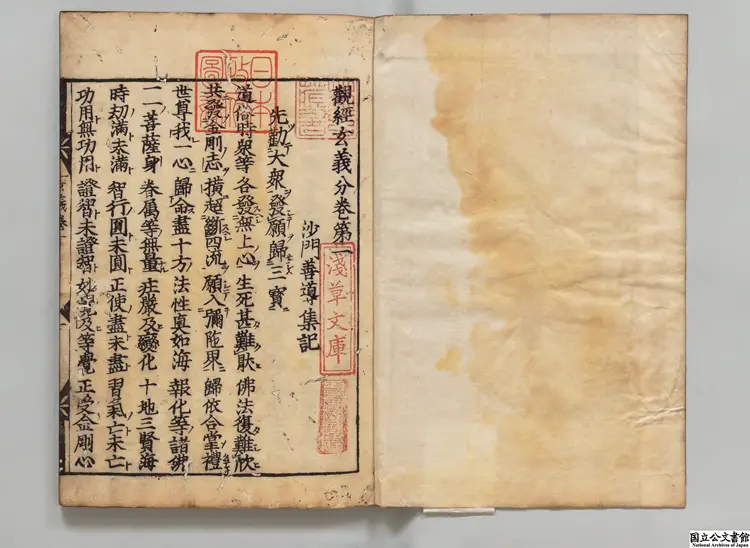 觀經玄義分卷第一
沙門善導集記
先勸大衆發願歸三寶
道俗時衆等 各發無上心 生死甚難猒 佛法復難欣
共發金剛志 橫超斷四流 願入彌陀界 歸依合掌禮
世尊我一心 歸命盡十方 法性眞如海 報化等諸佛
一一菩薩身 眷属等無量 莊嚴及變化 十地三賢海
時劫滿未滿 智行圓未圓 正使盡未盡 習氣亡未亡
功用無功用 證智未證智 妙覺及等覺 正受金剛心
日本政府圖書
淺草文庫
国立公文書館
National Archives of Japan